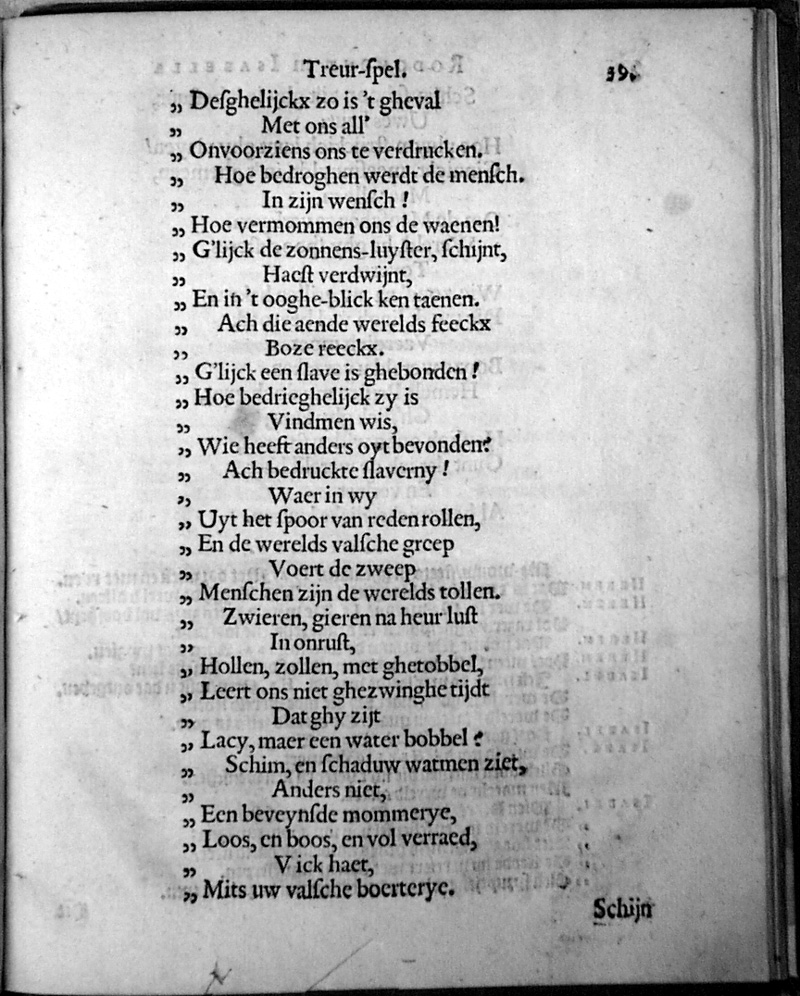 Treur-ſpel. 39.
„ Deſghelijckx zo is 't gheval
„ Met ons all'
„ Onvoorziens ons te verdrucken.
„ Hoe bedroghen werdt de menſch.
„ In zijn wenſch !
„ Hoe vermommen ons de waenen!
„ G'lijck de zonnens-luyſter, ſchijnt,
„ Haeſt verdwijnt,
„ En in 't ooghe-blick ken taenen.
„ Ach die aende werelds feeckx
„ Boze reeckx.
„ G'lijck een ſlave is ghebonden !
„ Hoe bedrieghelijck zy is
„ Vindmen wis,
„ Wie heeft anders oyt bevonden?
„ Ach bedruckte ſlaverny !
„ Waer in wy
„ Uyt het ſpoor van reden rollen,
„ En de werelds valſche greep
„ Voert de zweep
„ Menſchen zijn de werelds tollen.
„ Zwieren, gieren na heur luſt
„ In onruſt,
„ Hollen, zollen, met ghetobbel,
„ Leert ons niet ghezwinghe tijdt
„ Dat ghy zijt
„ Lacy, maer een water bobbel ?
„ Schim, en ſchaduw watmen ziet,
„ Anders niet,
„ Een beveynſde mommerye,
„ Loos, en boos, en vol verraed,
„ V ick haet,
„ Mits uw valſche boerterye.
Schijn